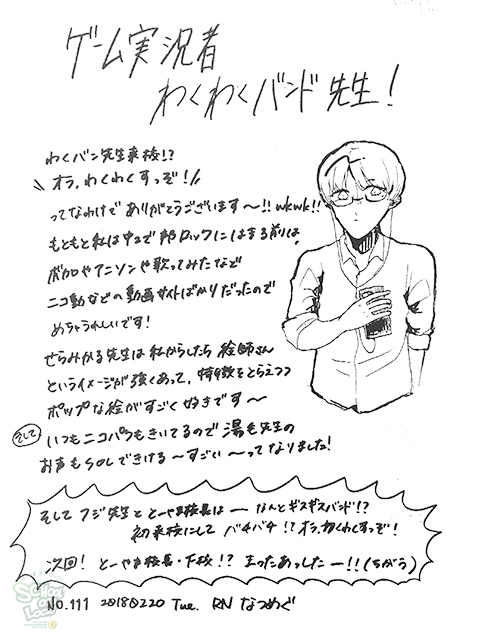 ゲーム実況者
わくわくバンド先生!
わくバン先生来校!?
\\ オラ、わくわくすっぞ!//
ってなわけで ありがとうございます〜!! wkwk!!
もともと私は中2で邦ロックにはまる前は、
ボカロやアニソンや歌ってみたなど
ニコ動などの動画サイトばかりだったので
めちゃうれしいです!
せらみかる先生は私からしたら絵師さん
というイメージが強くあって、特徴をとらえつつ
ポップな絵がすごく好きです〜
そして いつもニコパラもきいてるので湯毛先生の
お声もSOLできける〜すごい〜ってなりました!
そしてフジ先生ととーやま校長は ー なんとギスギスバンド!?
初来校にして バチバチ!? オラ、わくわくすっぞ!
次回! とーやま校長・下校!? まったあっしたー!!(ちがう)
School of Lock!
No.111 20180220 Tue. RN なつめぐ